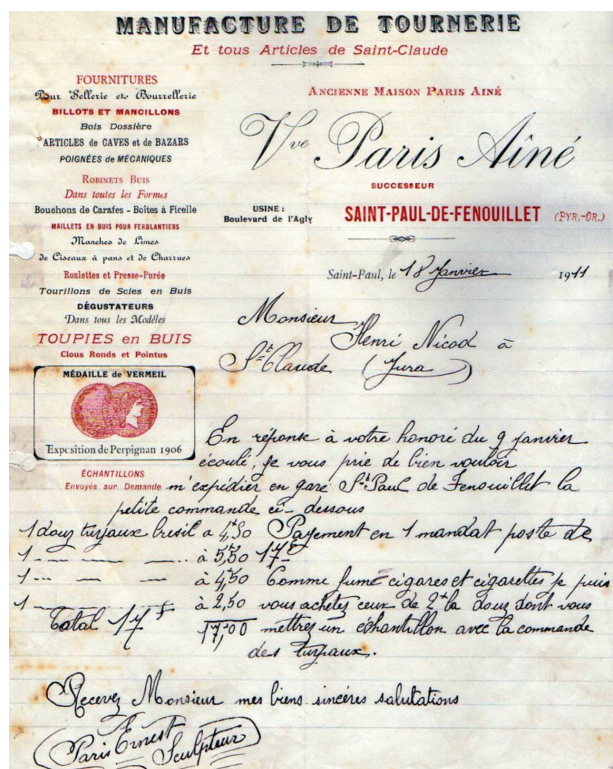 MANUFACTURE DE TOURNERIE
Et tous Articles de Saint-Claude
FOURNITURES
Pour Sellerie et Bourrellerie
BILLOTS ET MANCILLONS
Bois Dossière
ARTICLES de CAVES et de BAZARS
POIGNÉES de MÉCANIQUES
ROBINETS BUIS
Dans toutes les Formes
Bouchons de Carafes - Boîtes à Ficelle
MAILLETS EN BUIS POUR FERBLANTIERS
Manches de Limes
de Ciseaux à pans et de Charrues
Roulettes et Presse-Purée
Tourillons de Scies en Buis
DÉGUSTATEURS
Dans tous les Modèles
TOUPIES en BUIS
Clous Ronds et Pointus
MÉDAILLE de VERMEIL
Exposition de Perpignan 1906
ÉCHANTILLONS
Envoyés sur Demande
ANCIENNE MAISON PARIS AINÉ
Vve Paris Aîné
SUCCESSEUR
USINE :
Boulevard de l'Agly
SAINT-PAUL-DE-FENOUILLET (PYR.-OR.)
Saint-Paul, le 18 Janvier 1911
Monsieur
Henri Nicod à
St Claude (Jura)
En réponse à votre honoré du 9 janvier
écoulé, je vous prie de bien vouloir
m'expédier en gare St Paul de Fenouillet la
petite commande ci-dessous
1 douz turjaux bresil a 4,50 Payement en 1 mandat poste de
1 — — — à 5,50 17 f
1 — — — à 4,50 Comme fume cigares et cigarettes je puis
1 — à 2,50 vous achetez ceux de 2f la douz dont vous
Total 17 f 17,00 mettrez un échantillon avec la commande
des turjaux.
Recevez Monsieur mes biens sincères salutations
Paris Ernest
Sculpteur